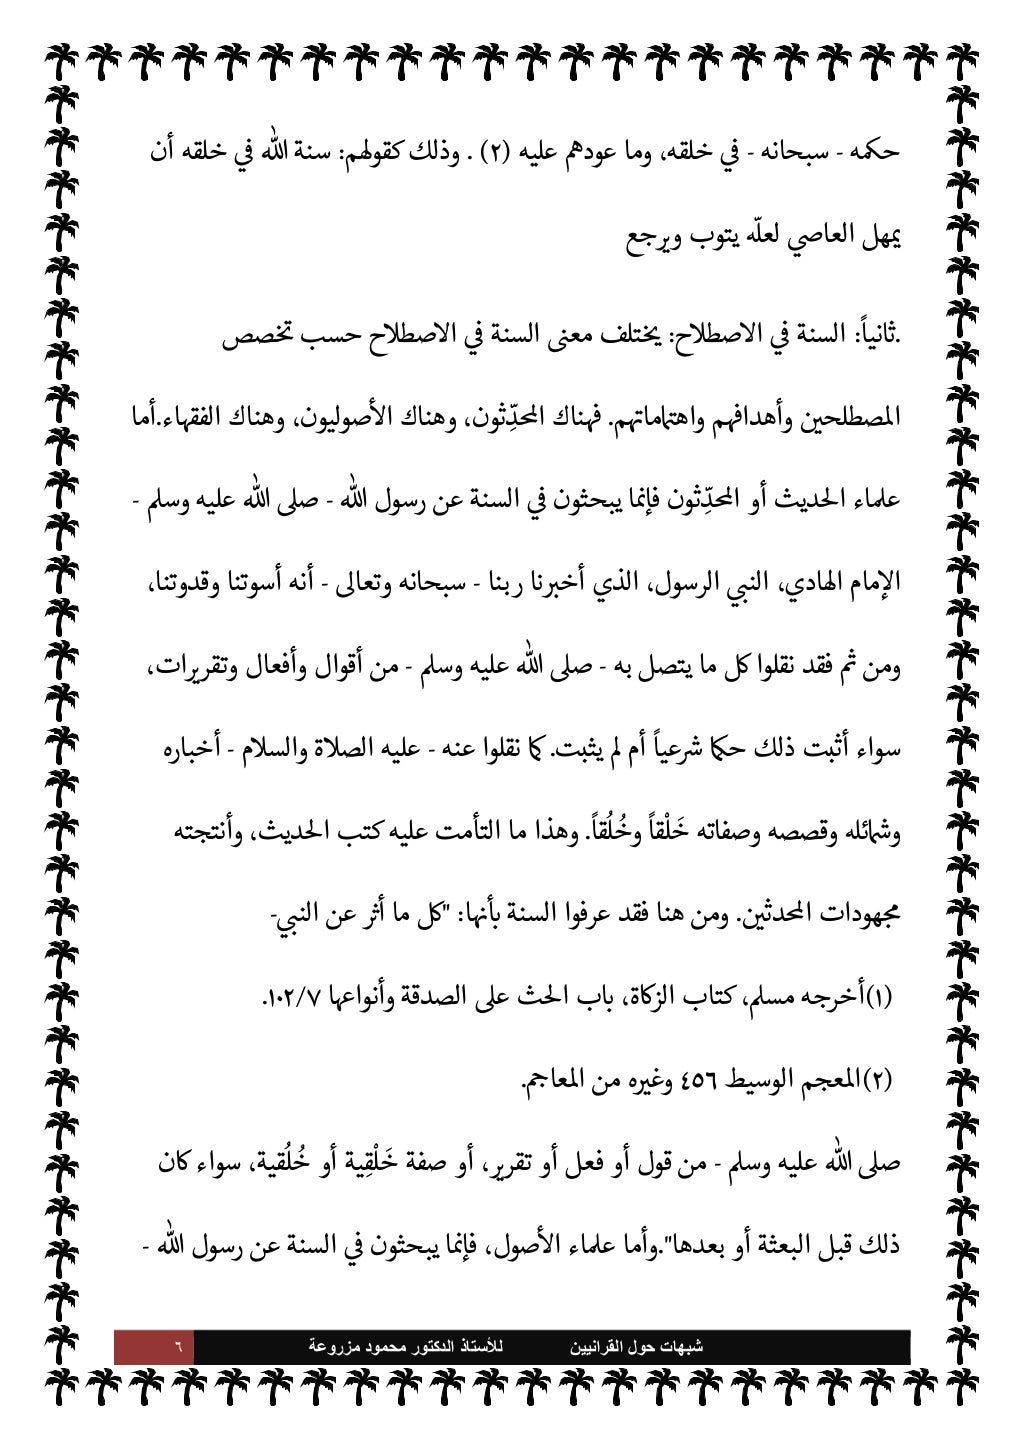 حكمه - سبحانه - في خلقه، وما عودهم عليه (٢) . وذلك كقولهم: سنة الله في خلقه أن
يمهل العاصي لعلّه يتوب ويرجع
.ثانياً: السنة في الاصطلاح: يختلف معنى السنة في الاصطلاح حسب تخصص
المصطلحين وأهدافهم واهتماماتهم. فهناك المحدِّثون، وهناك الأصوليون، وهناك الفقهاء.أما
علماء الحديث أو المحدِّثون فإنما يبحثون في السنة عن رسول الله - صلى الله عليه وسلم -
الإمام الهادي، النبي الرسول، الذي أخبرنا ربنا - سبحانه وتعالى - أنه أسوتنا وقدوتنا،
ومن ثم فقد نقلوا كل ما يتصل به - صلى الله عليه وسلم - من أقوال وأفعال وتقريرات،
سواء أثبت ذلك حكما شرعياً أم لم يثبت. كما نقلوا عنه - عليه الصلاة والسلام - أخباره
وشمائله وقصصه وصفاته خَلْقاً وخُلُقاً. وهذا ما التأمت عليه كتب الحديث، وأنتجته
مجهودات المحدثين. ومن هنا فقد عرفوا السنة بأنها: "كل ما أثر عن النبي-
(١)أخرجه مسلم، كتاب الزكاة، باب الحث على الصدقة وأنواعها ١٠٢/٧.
(٢)المعجم الوسيط ٤٥٦ وغيره من المعاجم.
صلى الله عليه وسلم - من قول أو فعل أو تقرير، أو صفة خَلْقِية أو خُلُقية، سواء كان
ذلك قبل البعثة أو بعدها".وأما علماء الأصول، فإنما يبحثون في السنة عن رسول الله -
شبهات حول القرانيين للأستاذ الدكتور محمود مزروعة ٦